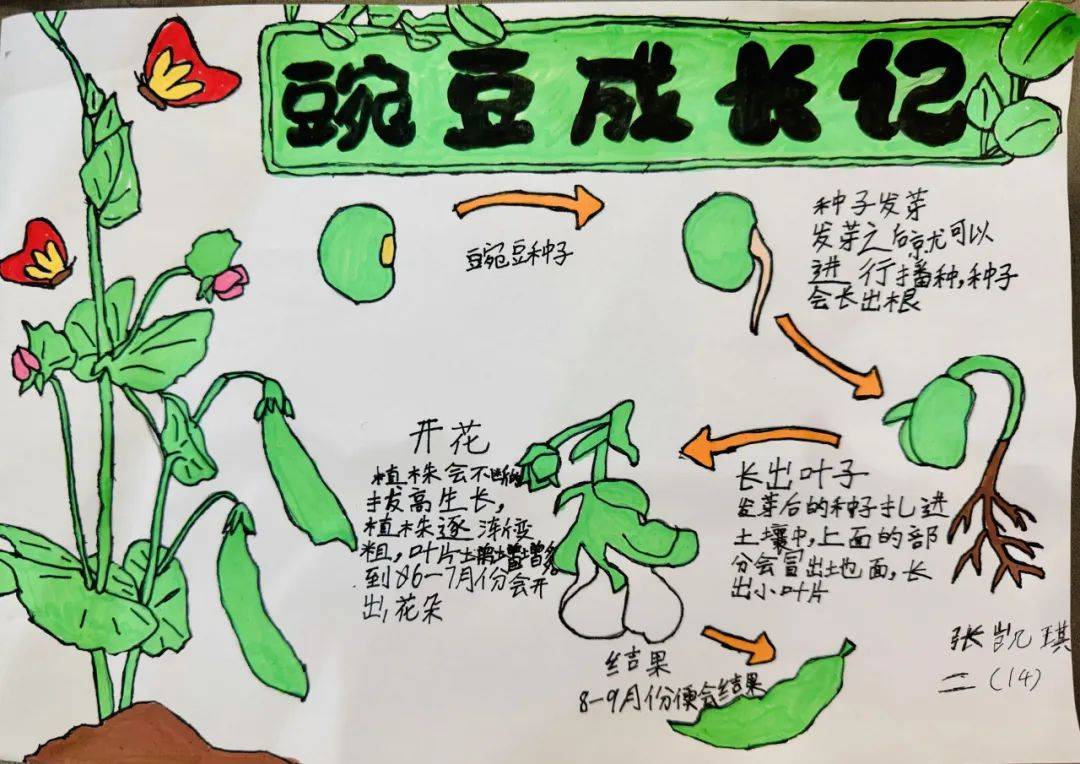 豌豆成长记
豌豆种子
种子发芽
发芽之后就可以
进行播种,种子
会长出根
长出叶子
发芽后的种子扎进
土壤中,上面的部
分会冒出地面,长
出小叶片
开花
植株会不断的
拔高生长,
植株逐渐变
粗,叶片增多
到6-7月份会开
出花朵
结果
8-9月份便会结果
张凯琪
二(14)